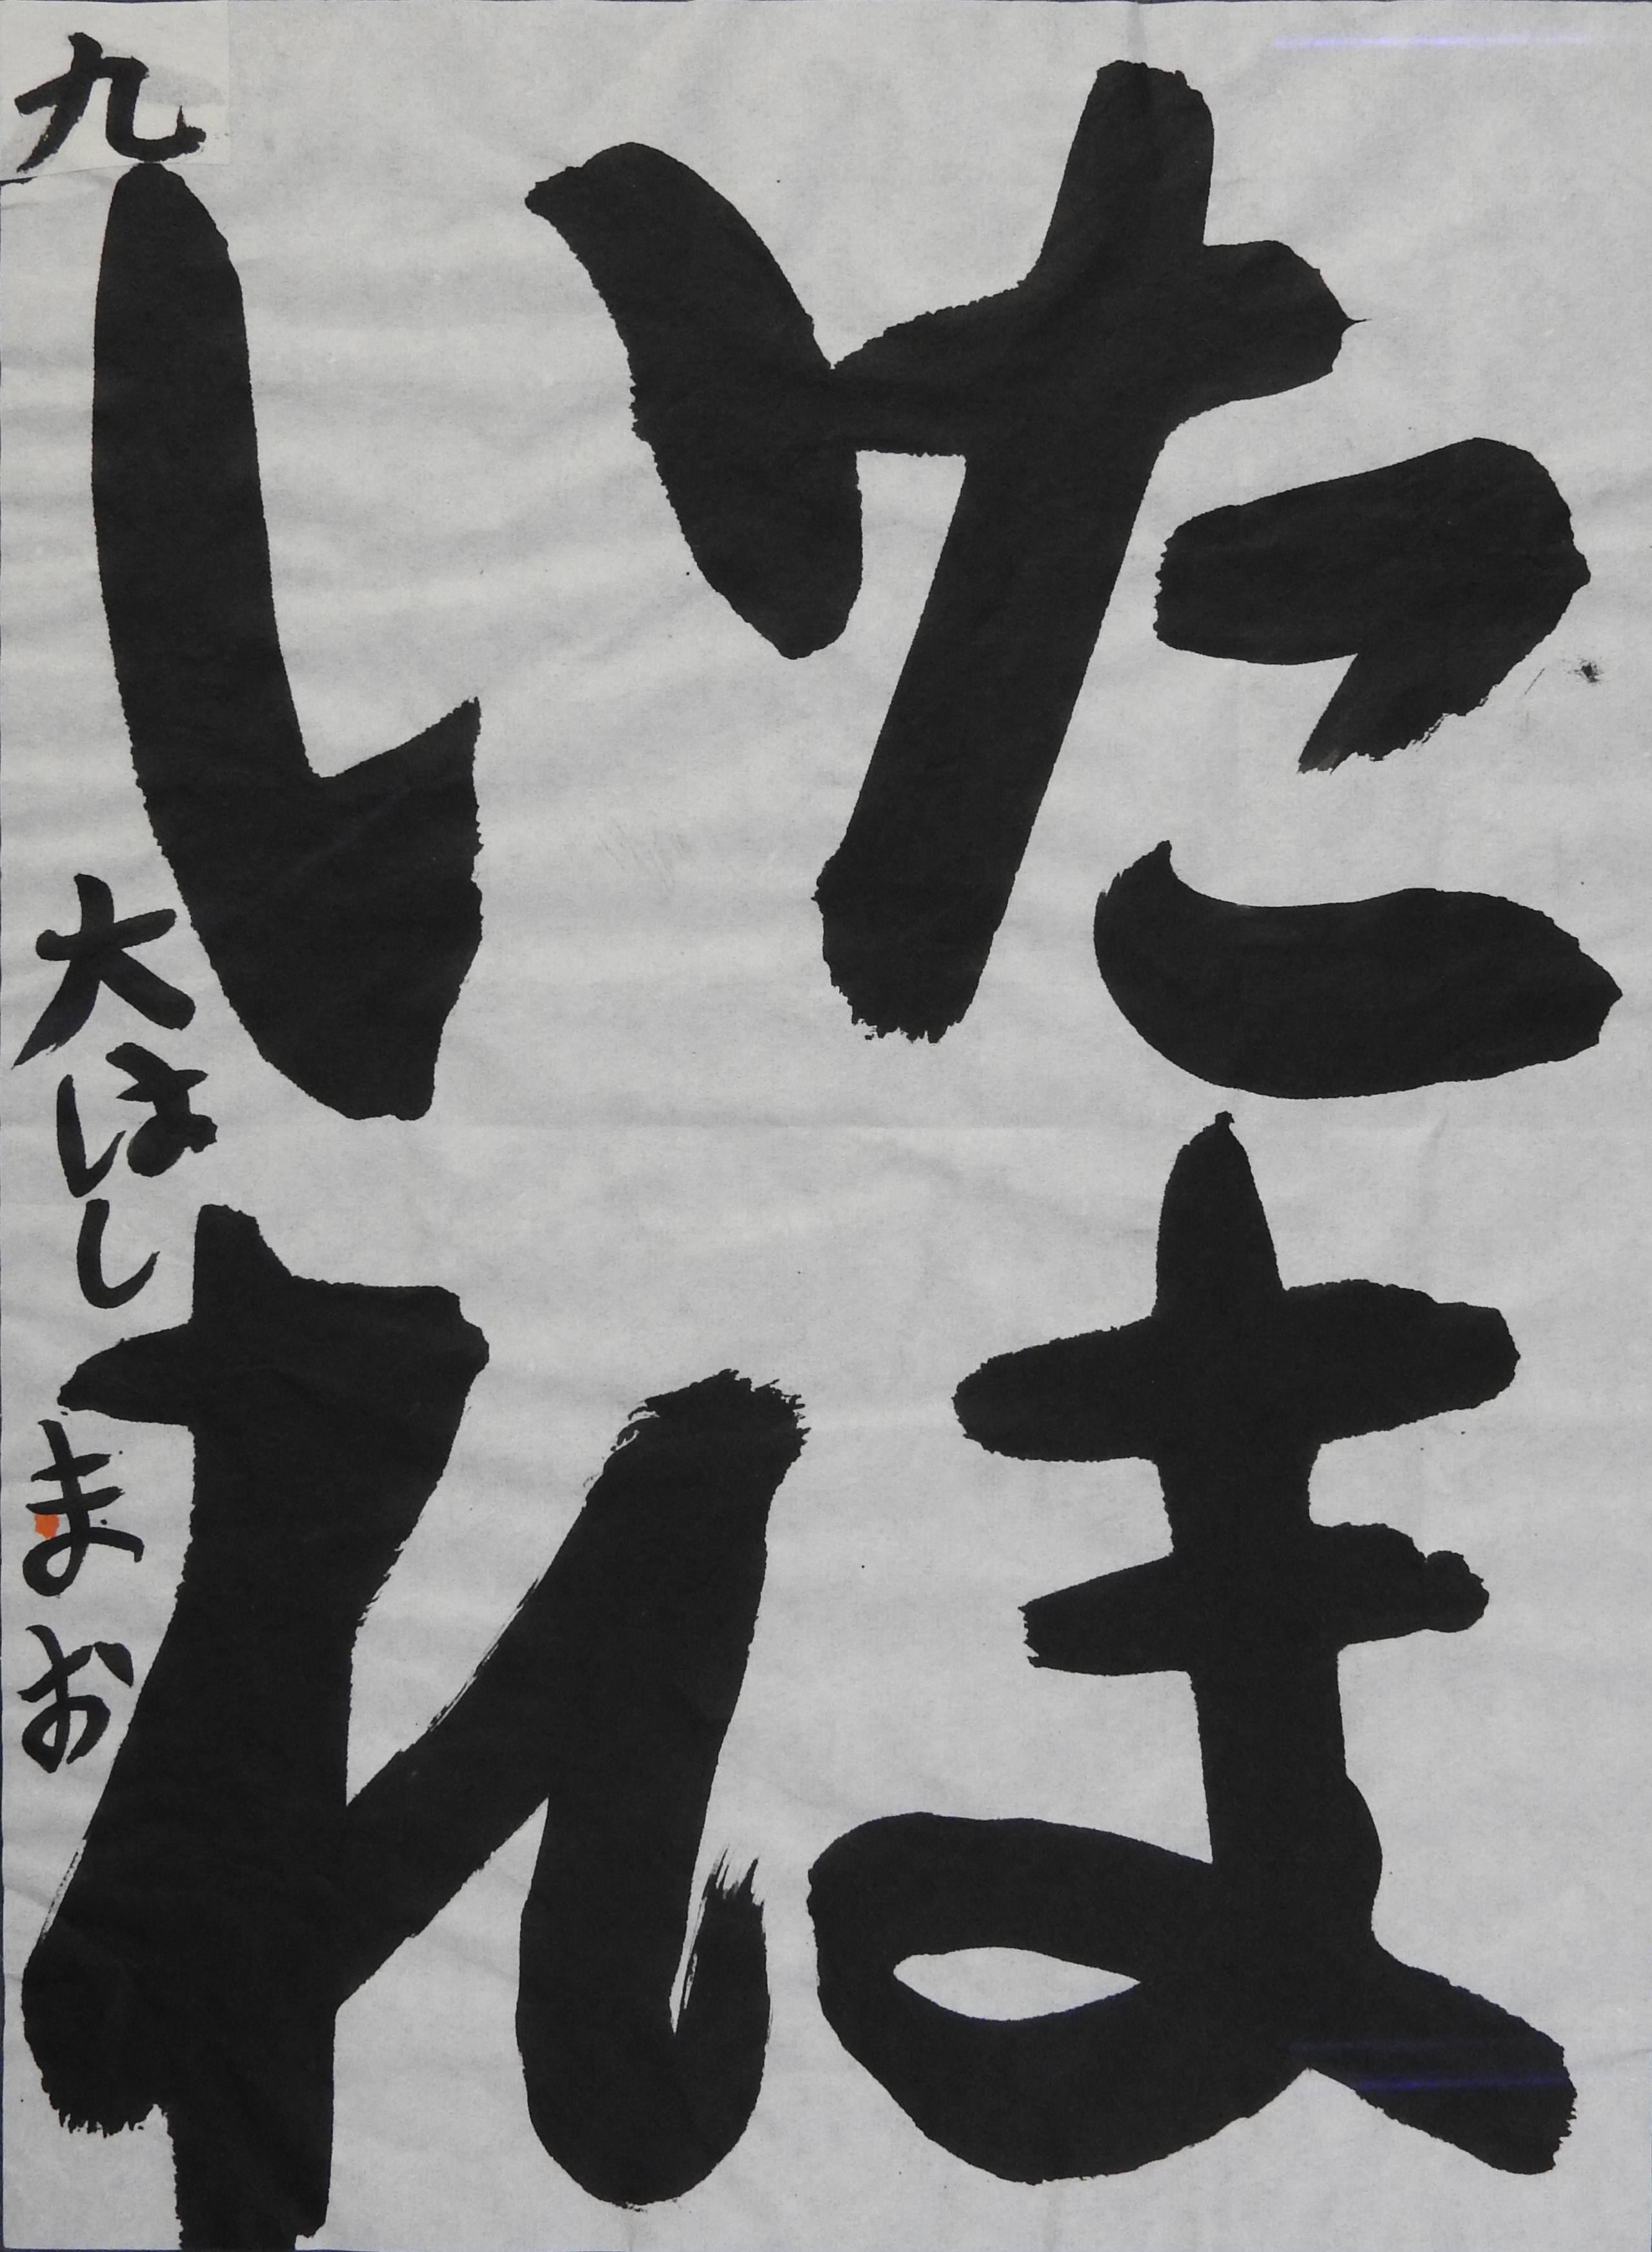 たま
しれ
九 大はし まお